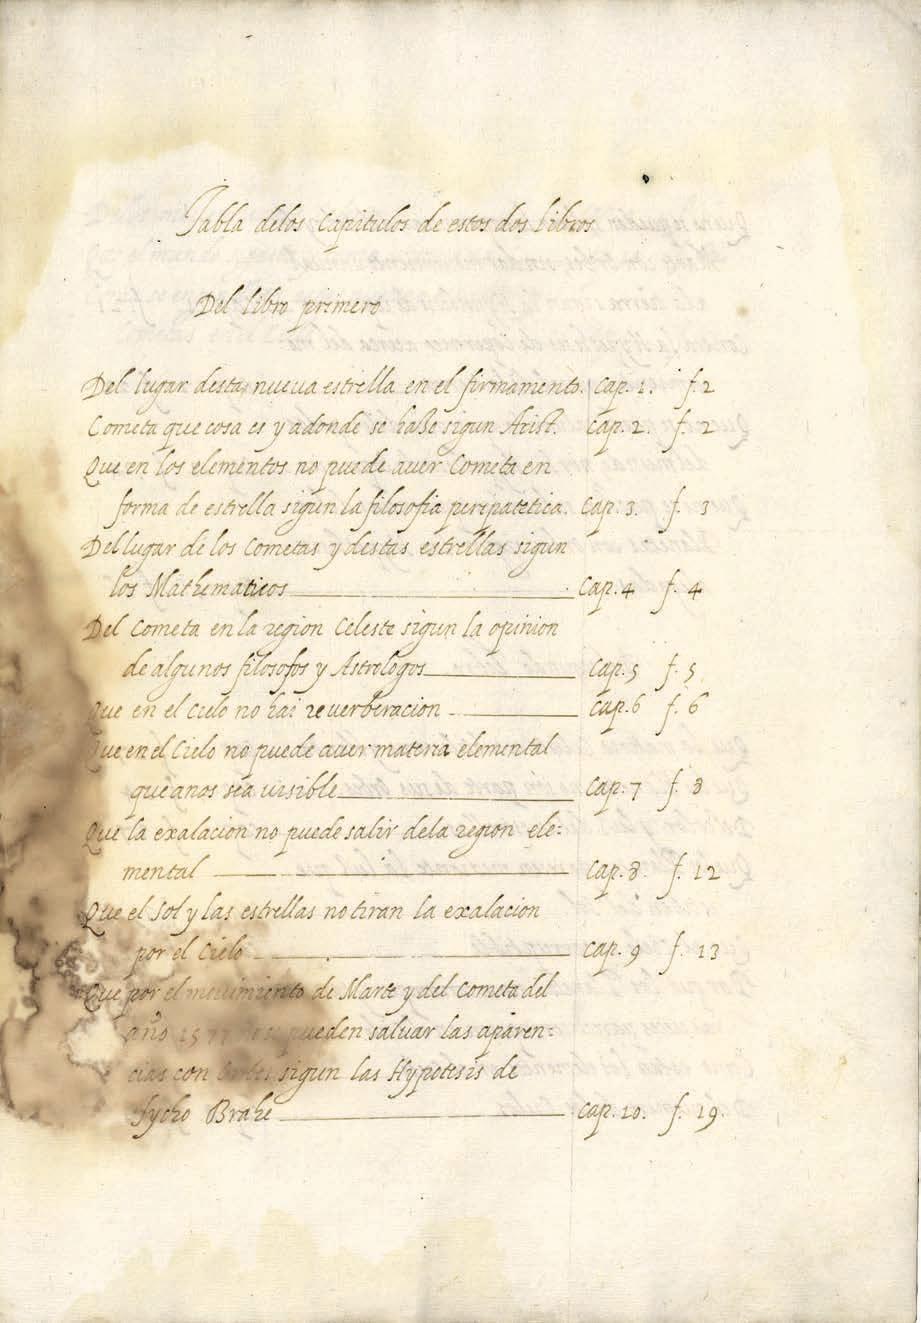 Tabla delos Capitulos de estos dos libros
Del libro primero
Del lugar desta nueva estrella en el firmamento. Cap. 1. f. 2
Cometa que cosa es y adonde se haze sigun Arist. Cap. 2. f. 2
Que en los elementos no puede aver Cometa en
forma de estrella sigun la filosofia peripatetica. Cap. 3. f. 3
Del lugar de los Cometas y destas estrellas sigun
los Mathematicos Cap. 4 f. 4
Del Cometa en la region Celeste sigun la opinion
de algunos filosofos y Astrologos Cap. 5 f. 5
Que en el Cielo no hai reverberacion Cap. 6 f. 6
Que en el Cielo no puede aver materia elemental
que anos sea visible Cap. 7 f. 8
Que la exalacion no puede salir dela region ele:
mental Cap. 8. f. 12
Que el Sol y las estrellas no tiran la exalacion
por el Cielo Cap. 9 f. 13
Que por el movimiento de Marte y del Cometa del
año 1577 pueden salvar las aparen:
cias con sigun las Hypotesis de
Tycho Brahe Cap. 10. f. 19.